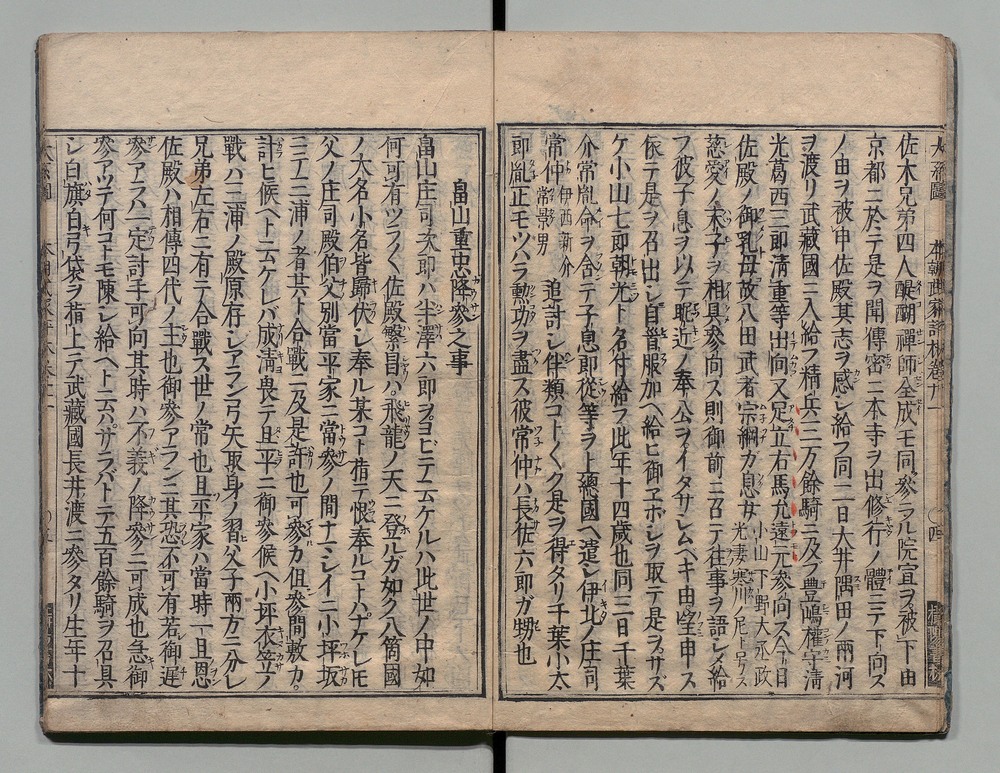 佐木兄弟四人醍醐禪師全成モ同參ラル院宣ヲ被下由
京都ニ於テ是ヲ聞傳密ニ本寺ヲ出修行ノ體ニテ下向ス
ノ由ヲ被申佐殿其志ヲ感シ給フ同二日大井隅田ノ兩河
ヲ渡リ武藏國ニ入給フ精兵三万餘騎ニ及フ豊嶋權守清
光葛西三郎清重等出向又足立右馬允遠元參向ス今日
佐殿ノ御乳母故八田武者宗綱カ息女小山下野大掾政光妻寒川ノ尼ト号ス
慈愛ノ末子ヲ相具參向ス則御前ニ召テ往事ヲ語シメ給
フ彼子息ヲ以テ眤近ノ奉公ヲイタサシムヘキ由望申ス
依テ是ヲ召出シ自首服加ヘ給ヒ御ヱボシヲ取テ是ヲサズ
ケ小山七郎朝光ト名付給フ此年十四歳也同三日千葉
介常胤命ヲ含テ子息郎從等ヲ上總國ヘ遣シ伊北ノ庄司
常仲伊西新介常景男追討シ伴類コトク是ヲ得タリ千葉小太
郎胤正モツハラ勲功ヲ盡ス彼常仲ハ長佐六郎ガ甥也
畠山重忠降參之事
畠山庄司次郎ハ半澤六郎ヲヨヒテ云ケルハ此世ノ中如
何可有ツラく佐殿繁自ハ飛龍ノ天ニ登ルガ如ク八箇國
ノ大名小名皆歸伏シ奉ル某コト指テ恨奉ルコトハナケレ𪜈
父ノ庄司殿伯父別當平家ニ當參ノ間ナマシイニ小坪坂
ニテ三浦ノ者共ト合戰ニ及是許也可參カ但參間敷カ
計ヒ候ヘト云ケレバ成清畏テ且平ニ御參候ヘ小坪衣笠ノ
戰ハ三浦ノ殿原存シアラン弓矢取身ノ習ヒ父子兩方ニ分レ
兄弟左右ニ有テ合戰ス世ノ常也且平家ハ當時一且恩
佐殿ハ相傳四代ノ主也御參アランニ其恐不可有若御遅
參アラハ一定討手可向其時ハ不義ノ降參ニ可成也急御
參アツテ何コトモ陳シ給ヘト云ハサラバトテ五百餘騎ヲ召具
シ白旗白弓袋ヲ指上テ武藏國長井渡ニ參タリ生年十